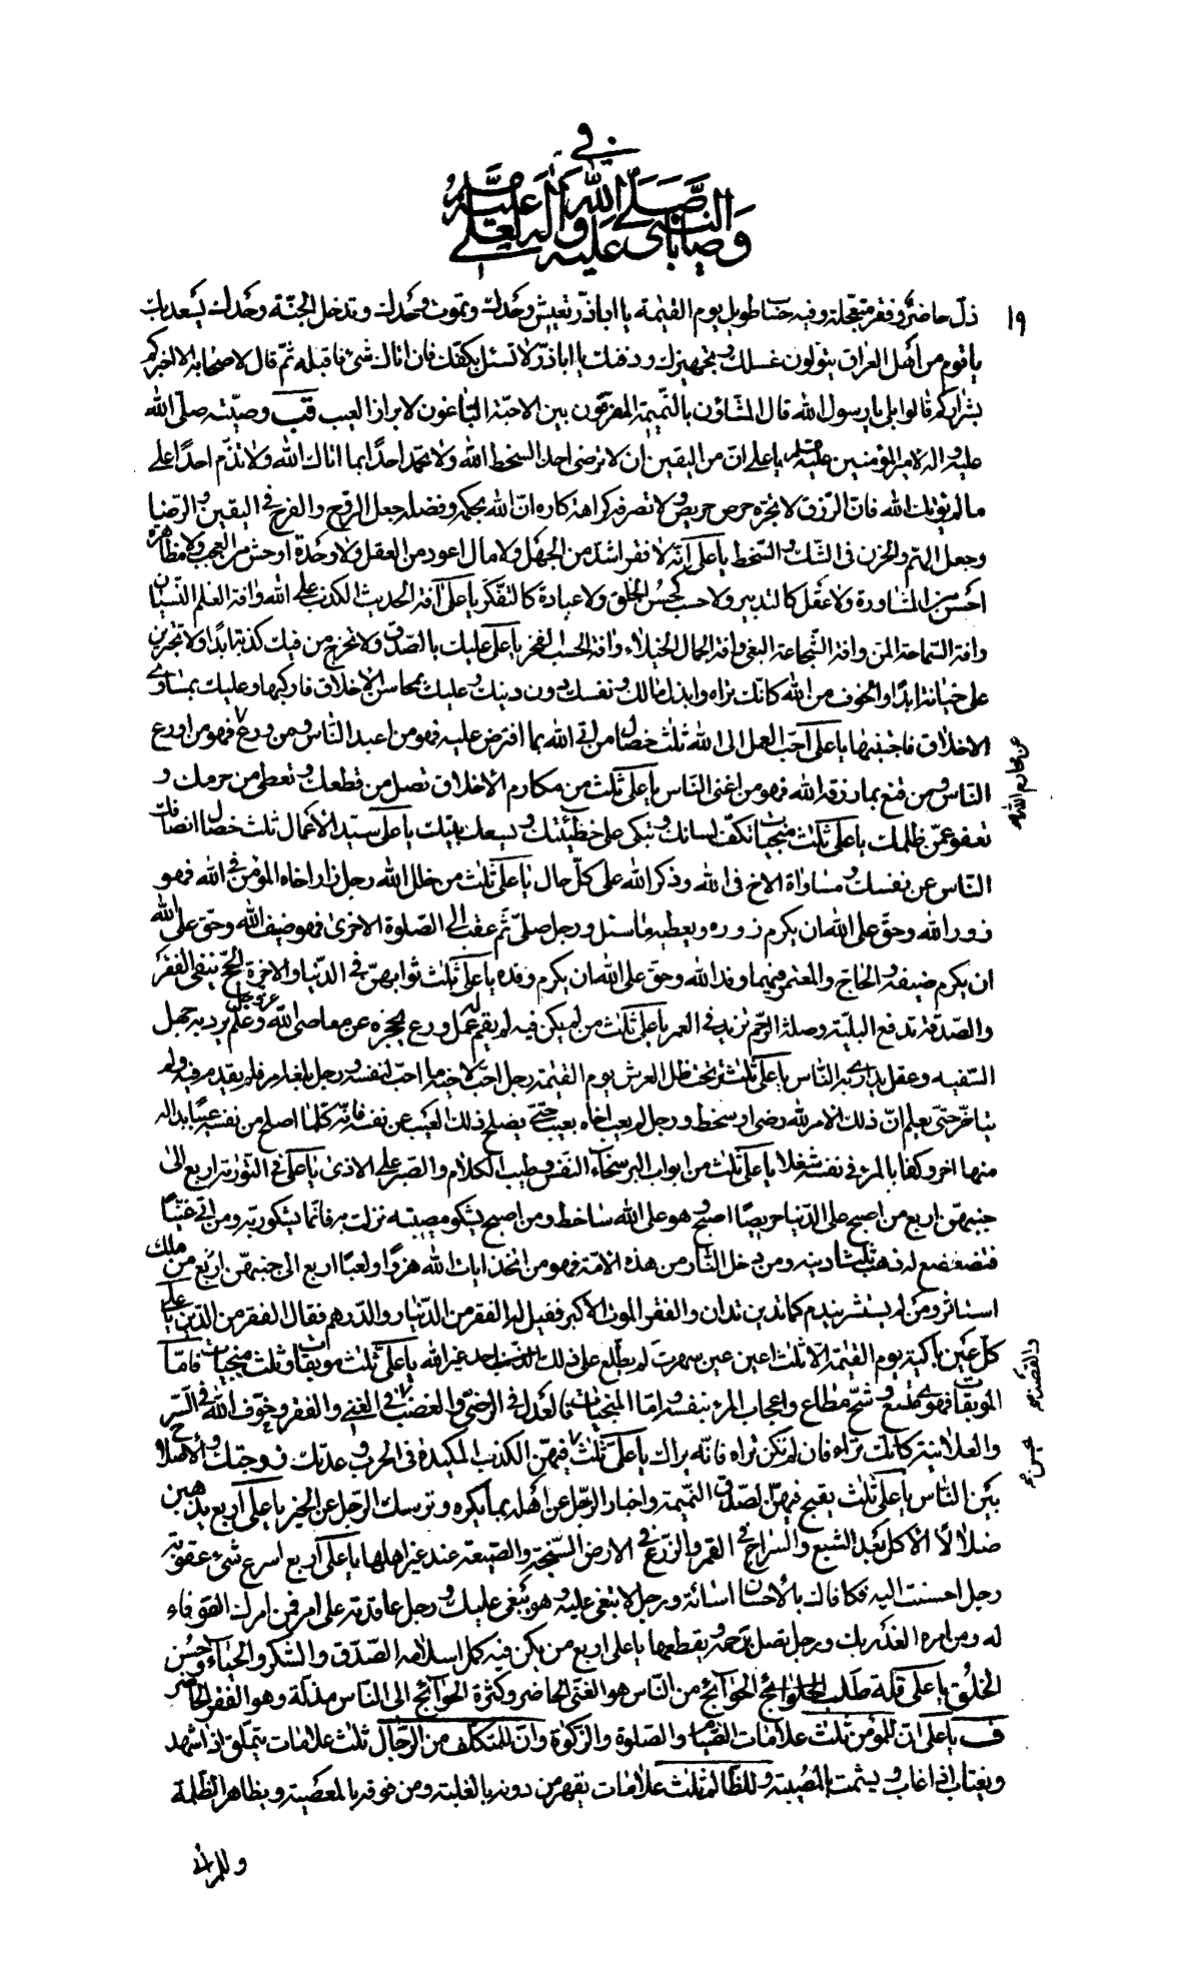 في
وصايا النبى صلى الله عليه واله لعلي عليه السلم
١٩
ذل حاضر وفقر متعجله وفيه حساب طويل يوم القيمة يا اباذر تعيش وحدك وتموت وحدك وتدخل الجنة وحدك يسعد بك
يا قوم من اهل العراق يتولون غسلك وتجهيزك ودفنك يا اباذر لا تسئل بكفك فان اتاك شىء فاقبله ثم قال لاصحابه الا اخبركم
بشراركم قالوا بلى يا رسول الله قال المشاؤن بالنميمة المفرقون بين الاحبة الباغون لابراز العيب قب وصيته صلى الله
عليه واله لامير المؤمنين عليه السلم يا على ان من اليقين ان لا ترضى احدا بسخط الله ولا تحمد احدا بما اتاك الله ولا تذم احدا على
ما لم يؤتك الله فان الرزق لا يجره حرص حريص ولا تصرفه كراهة كاره ان الله بحكمه وفضله جعل الروح والفرح فى اليقين والرضا
وجعل الهم والحزن فى الشك والسخط يا على انه لا فقر اشد من الجهل ولا مال اعود من العقل ولا وحدة اوحش من العجب ولا مظاهرة
احسن من المشاورة ولا عقل كالتدبير ولا حسب كحسن الخلق ولا عبادة كالتفكر يا على آفة الحديث الكذب على الله وافة العلم النسيان
وافة السماحة المن وافة الشجاعة البغى وافة الجمال الخيلاء وافة الحسب الفخر يا على عليك بالصدق ولا تخرج من فيك كذبة ابدا ولا تجترين
على خيانة ابدا والخوف من الله كانك تراه وابذل مالك ونفسك دون دينك وعليك بمحاسن الاخلاق فاركبها وعليك بمساوى
الاخلاق فاجتنبها يا على احب العمل الى الله ثلث خصال من اتى الله بما افترض عليه فهو من اعبد الناس ومن ورع فهو من اورع
عن محارم الله
الناس ومن قنع بما رزقه الله فهو من اغنى الناس يا على ثلث من مكارم الاخلاق تصل من قطعك وتعطى من حرمك و
تعفو عمن ظلمك يا على ثلث منجيات تكف لسانك وتبكى على خطيئتك ويسعك بيتك يا على سيد الاعمال ثلث خصال انصافك
الناس عن نفسك ومساواة الاخ فى الله وذكر الله على كل حال يا على ثلث من خلل الله رجل زار اخاه المؤمن فى الله فهو
زور الله وحق على الله ان يكرم زوره ويعطيه ما سئل ورجل صلى ثم عقب الى الصلوة الاخرى فهو ضيف الله وحق على الله
ان يكرم ضيفه والحاج والمعتمر فهما وفد الله وحق على الله ان يكرم وفده يا على ثلث ثوابهن فى الدنيا والاخرة الحج ينفى الفقر
والصدقة تدفع البلية وصلة الرحم تزيد فى العمر يا على ثلث من لم يكن فيه لم يقم له عمل ورع يحجزه عن معاصى الله عز وجل وعلم يرد به جهل
السفيه وعقل يدارى به الناس يا على ثلث تحت ظل العرش يوم القيمة رجل احب لاخيه ما احب لنفسه ورجل بلغه امر فلم يقدم فيه ولم
يتاخر حتى يعلم ان ذلك الامر لله رضى او سخط ورجل لم يعب اخاه بعيب حتى يصلح ذلك العيب عن نفسه فانه كلما اصلح من نفسه عيبا بدا له
منها اخر وكفا بالمرء فى نفسه شغلا يا على ثلث من ابواب البر سخاء النفس وطيب الكلام والصبر على الاذى يا على فى التورية اربع الى
جنبهن اربع من اصبح على الدنيا حريصا اصبح وهو على الله ساخط ومن اصبح يشكو مصيبته نزلت به فانما يشكو ربه ومن اتى غنيا
فتضعضع له ذهب ثلثا دينه ومن دخل النار من هذه الامة فهو من اتخذ ايات الله هزوا ولعبا اربع الى جنبهن اربع من ملك
استاثر ومن لم يستشر يندم كما تدين تدان والفقر الموت الاكبر فقيل له الفقر من الدينار والدرهم فقال الفقر من الدين يا على
كل عين باكية يوم القيمة الا ثلث اعين عين سهرت لم يطلع على ذلك الذنب احد غير الله يا على ثلث موبقات وثلث منجيات فاما
الموبقات فهوى متبع وشح مطاع واعجاب المرء بنفسه واما المنجيات فالعدل فى الرضى والغضب والقصد فى الغنى والفقر وخوف الله فى السر
والعلانية كانك تراه فان لم تكن تراه فانه يراك يا على ثلث يحسن فيهن الكذب المكيدة فى الحرب وعدتك زوجتك والاصلاح
بين الناس يا على ثلث يقبح فيهن الصدق النميمة واخبار الرجل عن اهله بما يكره وتوسك الرجل عن الخير يا على اربع يذهبن
ضلالا الاكل بعد الشبع والسراج فى القمر والزرع فى الارض السبخة والصنيعة عند غير اهلها يا على اربع اسرع شىء عقوبة
رجل احسنت اليه فكافاك بالاحسان اسائة ورجل لا تبغى عليه وهو يبغى عليك ورجل عاقدته على امر فمن امرك الوفاء
له ومن امره الغدر بك ورجل تصل رحمه ويقطعها يا على اربع من يكن فيه كمل اسلامه الصدق والشكر والحياء وحسن
الخلق يا على قلة طلب الحوائج من الناس هو الغنى الحاضر وكثرة الحوائج الى الناس مذلة وهو الفقر الحاضر
ف يا على ان للمؤمن ثلث علامات الصيام والصلوة والزكوة وان للمتكلف من الرجال ثلث علامات يتملق اذا شهد
ويغتاب اذا غاب ويشمت بالمصيبة وللظالم ثلث علامات يقهر من دونه بالغلبة ومن فوقه بالمعصية ويظاهر الظلمة
وللمرائى